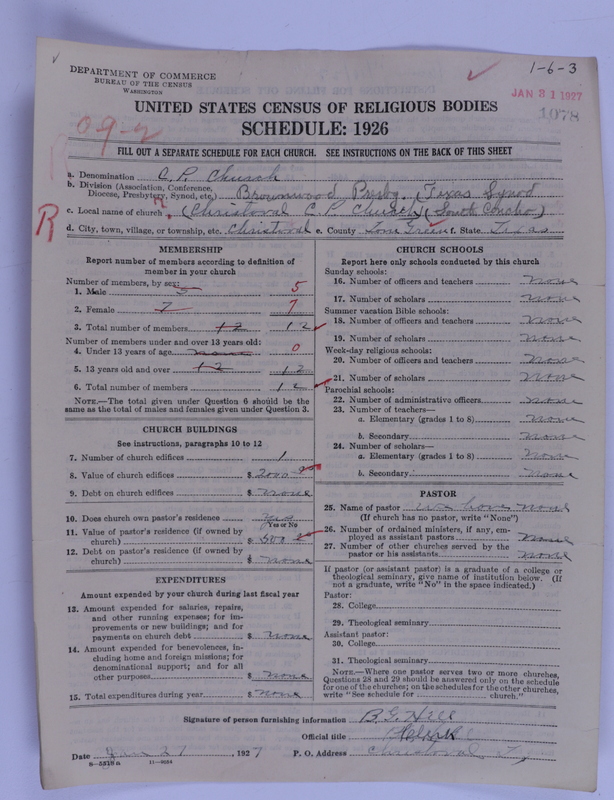 1-6-3
DEPARTMENT OF COMMERCE
BUREAU OF THE CENSUS
WASHINGTON
JAN 31 1927
1078
UNITED STATES CENSUS OF RELIGIOUS BODIES
SCHEDULE: 1926
09-2
FILL OUT A SEPARATE SCHEDULE FOR EACH CHURCH. SEE INSTRUCTIONS ON THE BACK OF THIS SHEET
a. Denomination C. P. Church
b. Division (Association, Conference, Diocese, Presbytery, Synod, etc.) Brownwood Presby. (Texas Synod
c. Local name of church (Christoval C P Church) (South Concho)
R
d. City, town, village, or township, etc. Christoval e. County Tom Green f. State Texas
MEMBERSHIP
Report number of members according to definition of
member in your church
Number of members, by sex:
1. Male 5 5
2. Female 7 7
3. Total number of members 12 12
Number of members under and over 13 years old:
4. Under 13 years of age none 0
5. 13 years old and over 12 12
6. Total number of members 12
NOTE.—The total given under Question 6 should be the
same as the total of males and females given under Question 3.
CHURCH BUILDINGS
See instructions, paragraphs 10 to 12
7. Number of church edifices 1
8. Value of church edifices $ 2000 00
9. Debt on church edifices $ none
10. Does church own pastor's residence yes
Yes or No
11. Value of pastor's residence (if owned by
church) $ 500 00
12. Debt on pastor's residence (if owned by
church) $ none
EXPENDITURES
Amount expended by your church during last fiscal year
13. Amount expended for salaries, repairs,
and other running expenses; for im-
provements or new buildings; and for
payments on church debt $ none
14. Amount expended for benevolences, in-
cluding home and foreign missions; for
denominational support; and for all
other purposes $ none
15. Total expenditures during year $ none
CHURCH SCHOOLS
Report here only schools conducted by this church
Sunday schools:
16. Number of officers and teachers none
17. Number of scholars none
Summer vacation Bible schools:
18. Number of officers and teachers none
19. Number of scholars none
Week-day religious schools:
20. Number of officers and teachers none
21. Number of scholars none
Parochial schools:
22. Number of administrative officers none
23. Number of teachers—
a. Elementary (grades 1 to 8) none
b. Secondary none
24. Number of scholars—
a. Elementary (grades 1 to 8) none
b. Secondary none
PASTOR
25. Name of pastor we have none
(If church has no pastor, write "None")
26. Number of ordained ministers, if any, em-
ployed as assistant pastors none
27. Number of other churches served by the
pastor or his assistants none
If pastor (or assistant pastor) is a graduate of a college or
theological seminary, give name of institution below. (If
not a graduate, write "No" in the space indicated.)
Pastor:
28. College
29. Theological seminary
Assistant pastor:
30. College
31. Theological seminary
NOTE.—Where one pastor serves two or more churches,
Questions 28 and 29 should be answered only on the schedule
for one of the churches; on the schedules for the other churches,
write "See schedule for church."
Signature of person furnishing information B. G. Hill
Official title Clerk
Date Jan 27, 1927 P. O. Address Christoval
8-5518a 11-9034